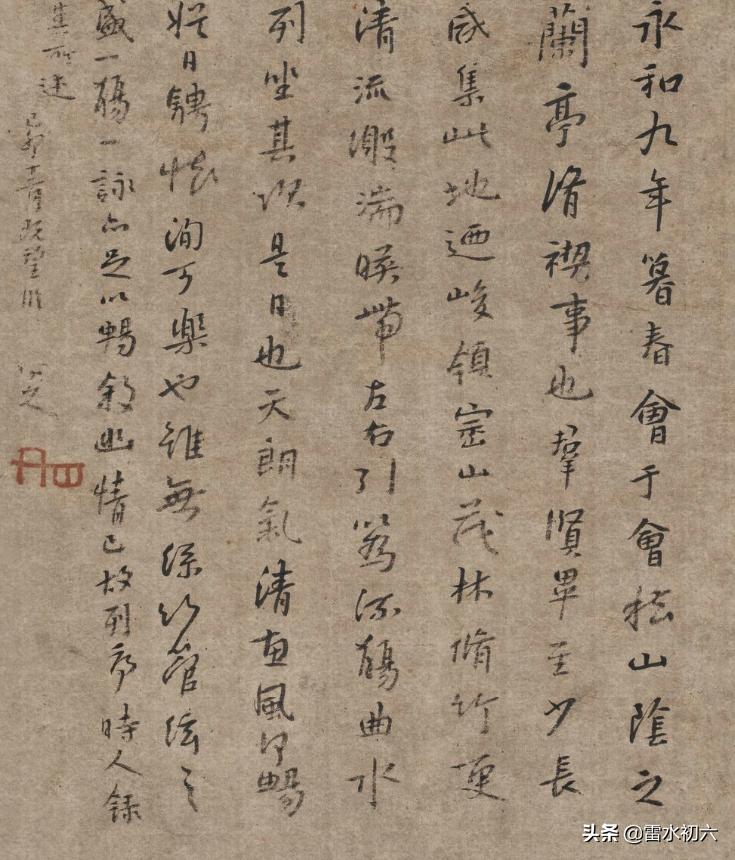 永和九年暮春會于會稽山陰之
蘭亭脩禊事也羣賢畢至少長
咸集此地迺峻領崇山茂林脩竹更
清流激湍暎帶左右引以為流觴曲水
列坐其次是日也天朗氣清惠風和暢
娛目騁懷洵可樂也雖無絲竹管絃之
盛一觴一詠亦足以暢敘幽情已故列序時人錄
其所述
己卯 既望臨
头条 @雷水初六